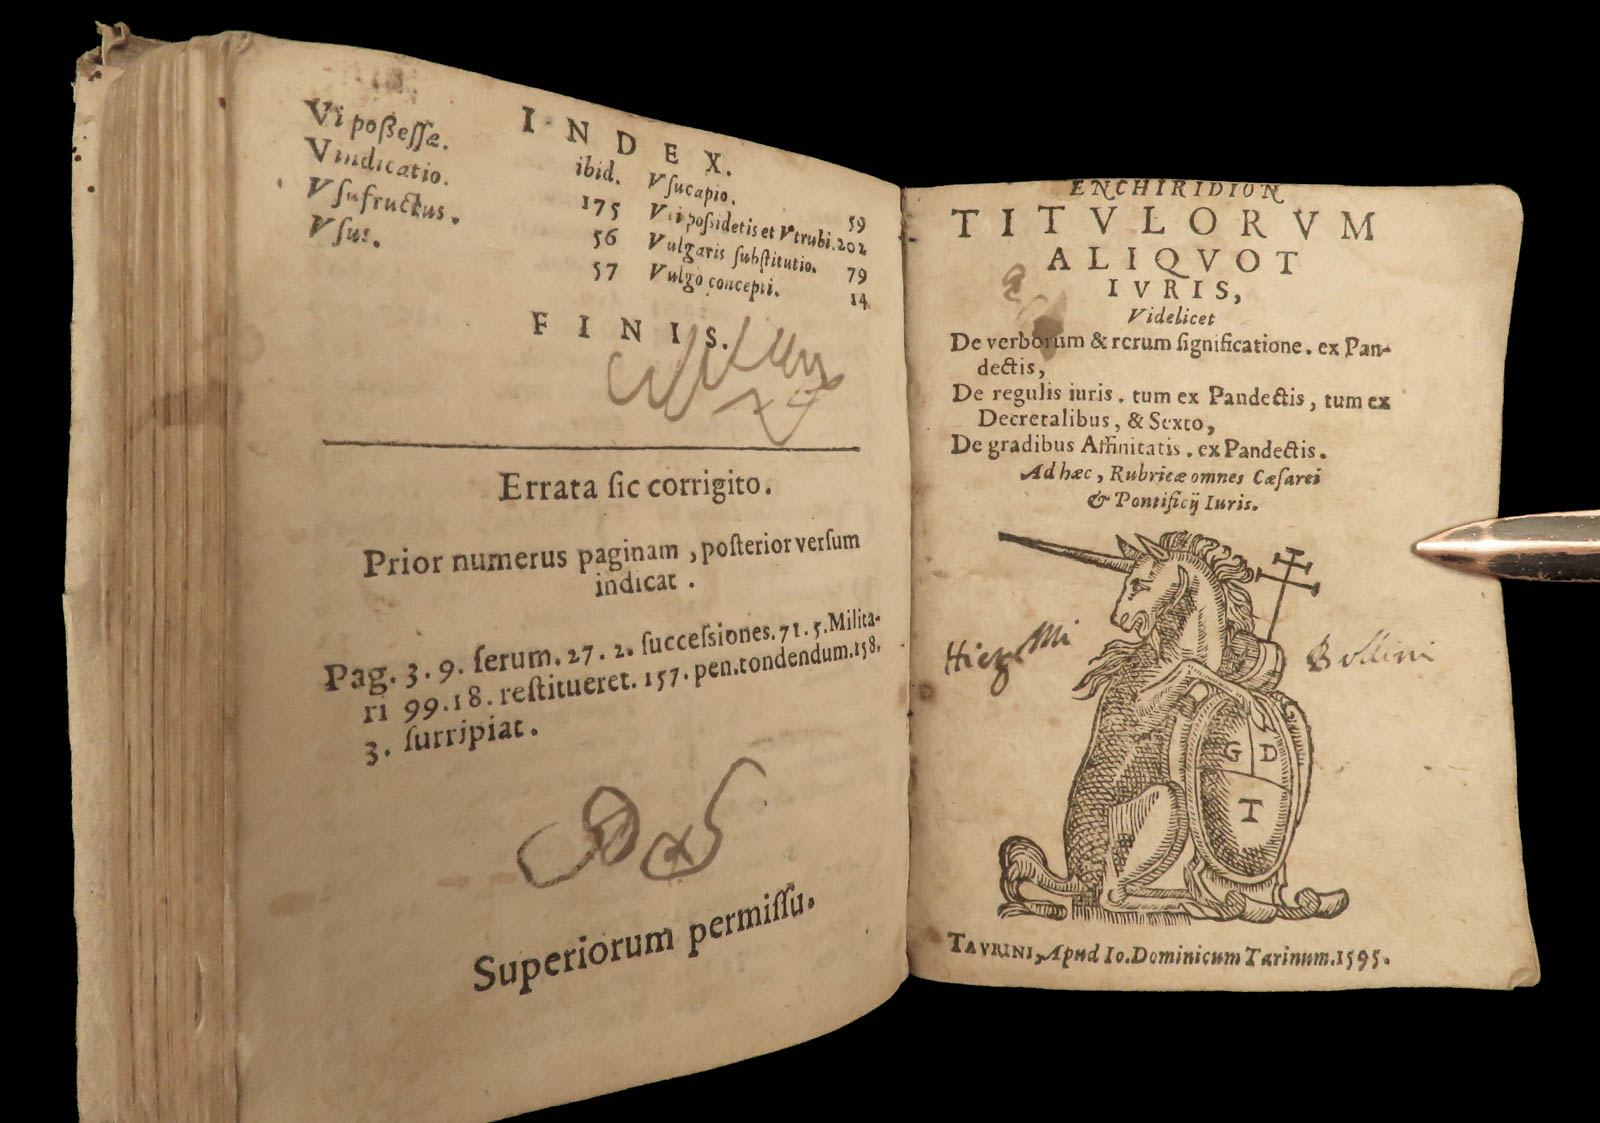 INDEX.
Vi poßeſſæ. ibid.
Vindicatio. 175
Vſufructus. 56
Vſus. 57
Vſucapio. 59
Vti poſsidetis et Vtrubi. 202
Vulgaris ſubſtitutio. 79
Vulgo concepti. 14
FINIS.
Errata ſic corrigito.
Prior numerus paginam, poſterior verſum
indicat.
Pag. 3. 9. ſerum. 27. 2. ſucceſsiones. 71. 5. Milita-
ri 99. 18. reſtitueret. 157. pen. tondendum. 158.
3. ſurripiat.
Superiorum permiſſu.
ENCHIRIDION
TITVLORVM
ALIQVOT
IVRIS,
Videlicet
De verborum & rerum ſignificatione. ex Pan-
dectis,
De regulis iuris. tum ex Pandectis, tum ex
Decretalibus, & Sexto,
De gradibus Affinitatis. ex Pandectis.
Ad hæc, Rubricæ omnes Cæſarei
& Pontificij Iuris.
Bollini
G D
T
TAVRINI, Apud Io. Dominicum Tarinum. 1595.